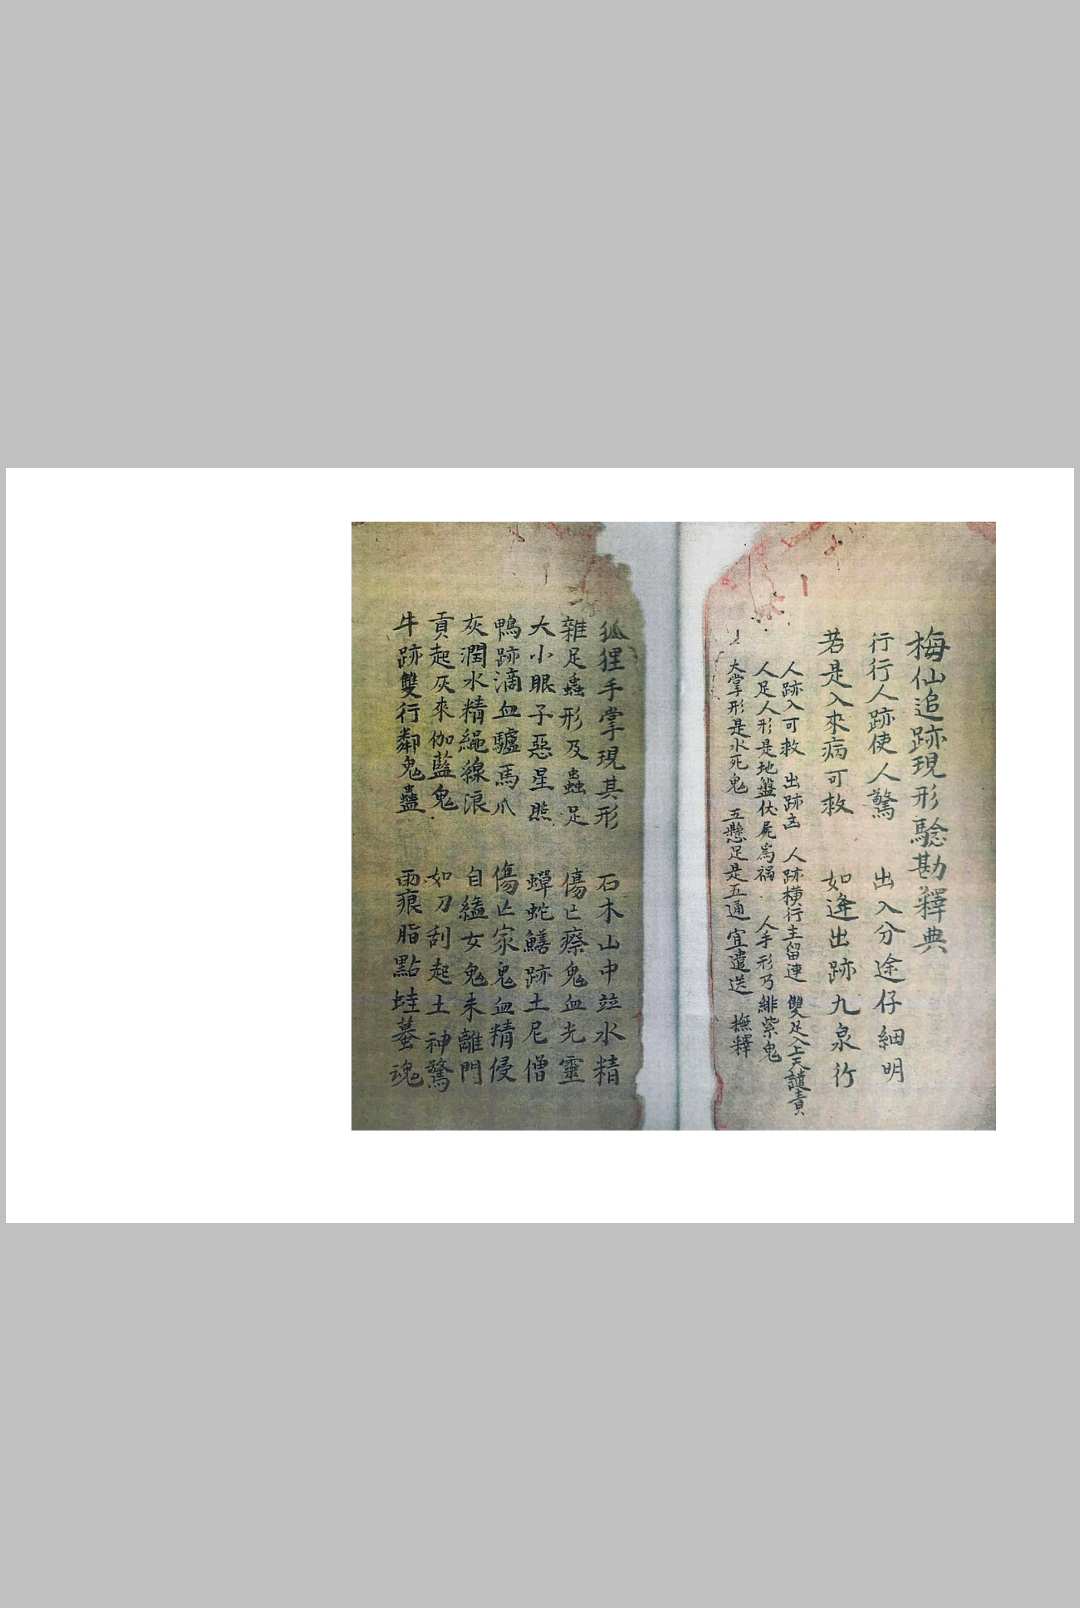 梅仙追跡現形驗勘釋典
行行人跡使人驚　出入分途仔細明
若是入來病可救　如逢出跡九泉行
人跡入可救　出跡凶　人跡橫行主留連　雙足入上天譴責
人足人形是地盤伏屍為禍　人手形乃緋紫鬼
大掌形是水死鬼　五懸足是五通　宜遣送　撫釋
狐狸手掌現其形　石木山中並水精
雜足蟲形及蟲足　傷亡瘵鬼血光靈
大小眼子惡星照　蟬蛇鱔跡土尼僧
鴨跡滴血驢馬爪　傷亡家鬼血精侵
灰潤水精繩線浪　自縊女鬼未離門
賁起灰來伽藍鬼　如刀刮起土神驚
牛跡雙行鄰鬼蠱　雨痕脂點蛙蟇魂